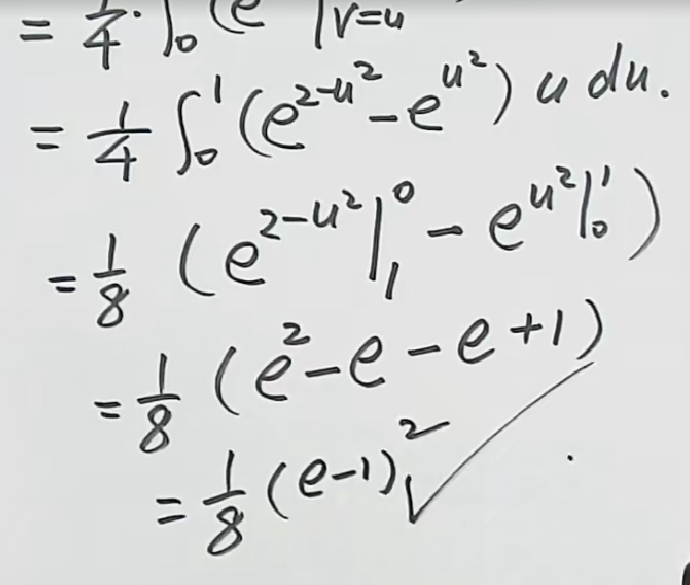 = 1/4 · ∫₀ (e |v=u
= 1/4 ∫₀¹ (e^{2-u²} - e^{u²}) u du.
= 1/8 (e^{2-u²}|₁⁰ - e^{u²}|₀¹)
= 1/8 (e² - e - e + 1)
= 1/8 (e-1)² ✓